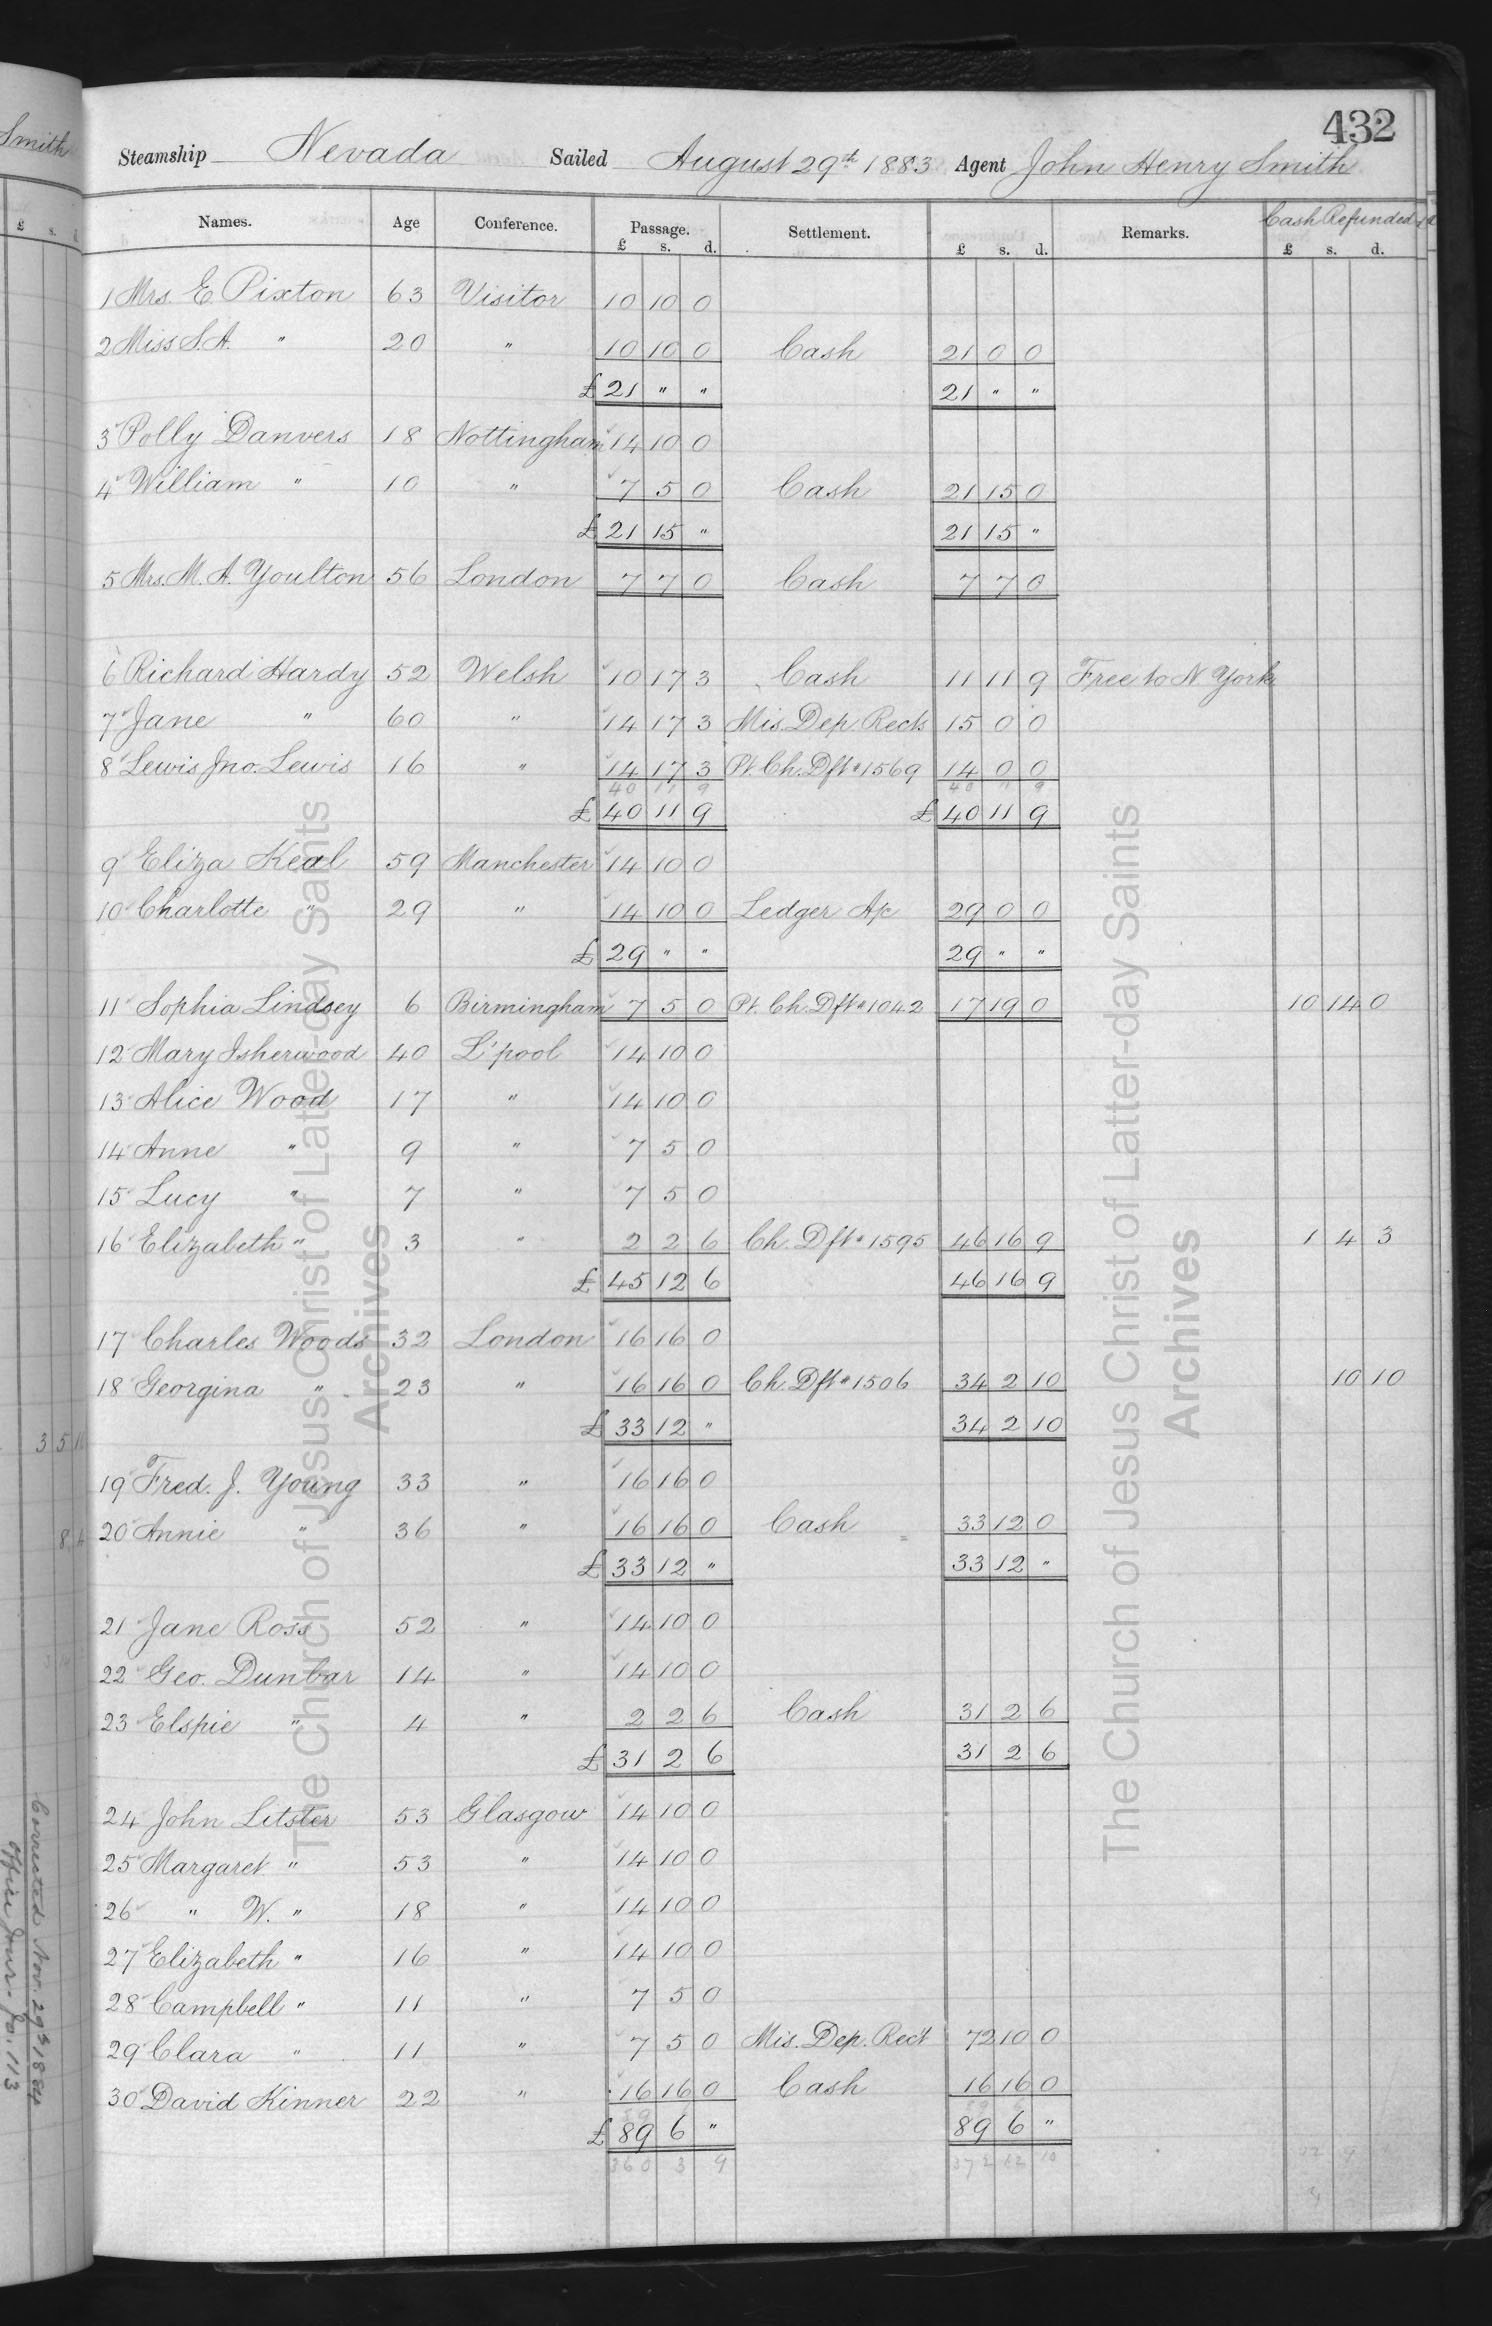 Smith
432
Steamship Nevada Sailed August 29th 1883 Agent John Henry Smith
Names. Age Conference. Passage. Settlement. Remarks. Cash Refunded
£ s. d. £ s. d. £ s. d. £ s. d.
1 Mrs. E Pixton 63 Visitor 10 10 0
2 Miss S.A. " 20 " 10 10 0 Cash 21 0 0
£ 21 " " 21 " "
3 Polly Danvers 18 Nottingham 14 10 0
4 William " 10 " 7 5 0 Cash 21 15 0
£ 21 15 " 21 15 "
5 Mrs. M. A. Youlton 56 London 7 7 0 Cash 7 7 0
6 Richard Hardy 52 Welsh 10 17 3 Cash 11 11 9 Free to N York
7 Jane " 60 " 14 17 3 Mis. Dep. Rects 15 0 0
8 Lewis Jno. Lewis 16 " 14 17 3 Pt. Ch. Dft # 1569 14 0 0
40 11 9 40 11 9
£ 40 11 9 £ 40 11 9
9 Eliza Keal 59 Manchester 14 10 0
10 Charlotte " 29 " 14 10 0 Ledger A/c 29 0 0
£ 29 " " 29 " "
11 Sophia Lindsey 6 Birmingham 7 5 0 Pt. Ch. Dft # 1042 17 19 0 10 14 0
12 Mary Isherwood 40 L'pool 14 10 0
13 Alice Wood 17 " 14 10 0
14 Anne " 9 " 7 5 0
15 Lucy " 7 " 7 5 0
16 Elizabeth " 3 " 2 2 6 Ch. Dft # 1595 46 16 9 1 4 3
£ 45 12 6 46 16 9
17 Charles Woods 32 London 16 16 0
18 Georgina " 23 " 16 16 0 Ch. Dft # 1506 34 2 10 10 10
£ 33 12 " 34 2 10
19 Fred. J. Young 33 " 16 16 0
20 Annie " 36 " 16 16 0 Cash 33 12 0
£ 33 12 " 33 12 "
21 Jane Ross 52 " 14 10 0
22 Geo. Dunbar 14 " 14 10 0
23 Elspie " 4 " 2 2 6 Cash 31 2 6
£ 31 2 6 31 2 6
24 John Litster 53 Glasgow 14 10 0
25 Margaret " 53 " 14 10 0
26 " W. " 18 " 14 10 0
27 Elizabeth " 16 " 14 10 0
28 Campbell " 11 " 7 5 0
29 Clara " 11 " 7 5 0 Mis. Dep. Rect 72 10 0
30 David Kinner 22 " 16 16 0 Cash 16 16 0
£ 89 6 " 89 6 "
360 3 9 372 12 10 12 9
Corrected Nov. 29th 1884
Office Jour. fo. 113
The Church of Jesus Christ of Latter-day Saints
Archives
The Church of Jesus Christ of Latter-day Saints
Archives